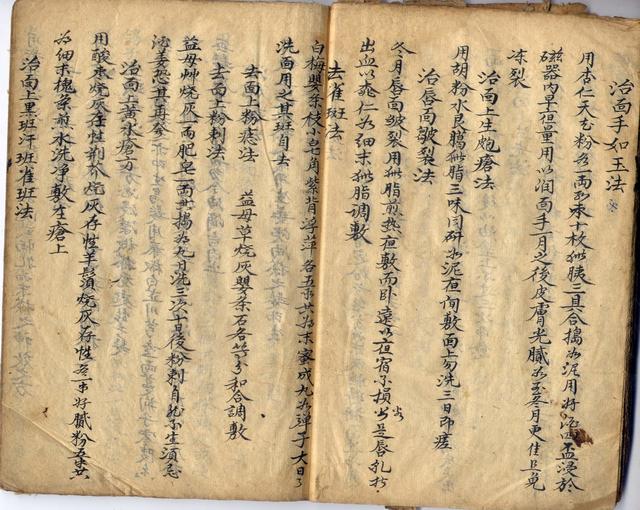 治面手如玉法
用杏仁天花粉各一两红枣十枚猪胰三具合搗如泥用好酒四盃浸於
磁器内早但量用以润面手一月之後皮膚光膩如玉冬月更佳且免
冻裂
治面上生皰瘡法
用胡粉水艮臈猪脂三味同研如泥夜间敷面上勿洗三日即瘥
治唇面皴裂法
冬月唇面皴裂用猪脂煎熟夜敷而卧遠行夜宿不損出是唇乳打
出血以 仁为细末猪脂調敷
去雀斑法
白梅 桃条小皂角紫背浮萍各五 共为末蜜成丸如弹子大日日
洗面用之其斑自去
去面上粉痣法
益母草烧灰 条石各等分和合調敷
去面上粉刺法
益母艸烧灰一两肥皂一两共搗为丸日洗三次十日後粉刺自然不生须忌
酒姜恐其再發
治面上黄水瘡方
用酸枣烧灰存性荆芥烧灰存性羊鬚烧灰存性各一 好膩粉五 共
为细末槐条煎水洗净敷在瘡上
治面上黑斑汗班雀斑法